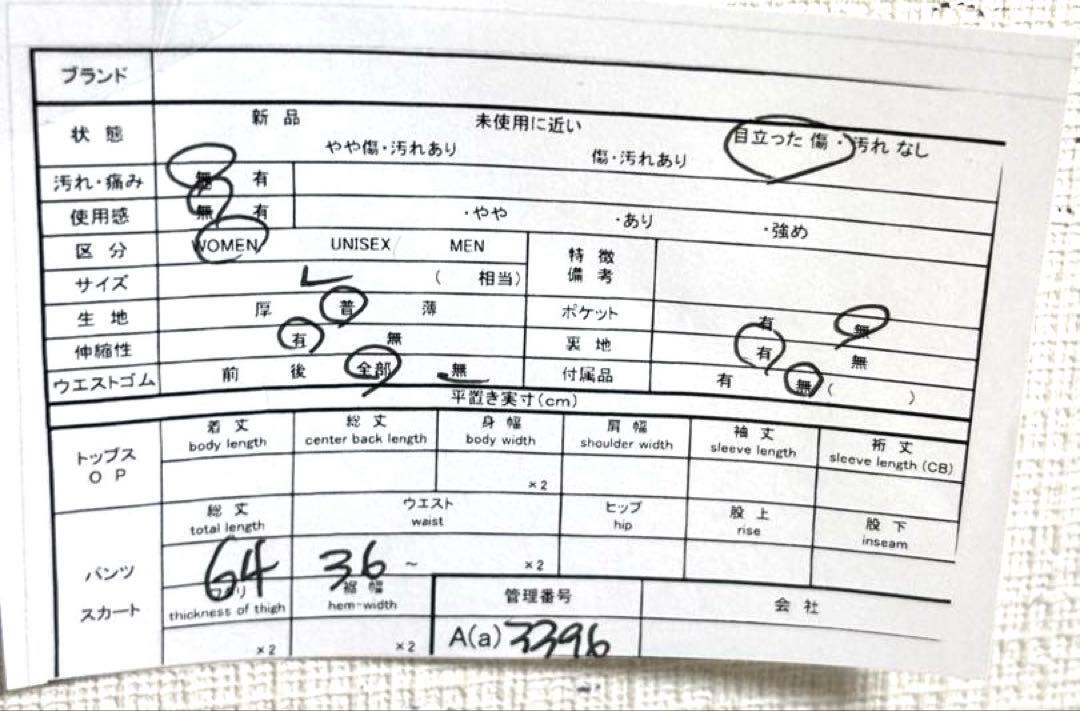 ブランド
状態 新品 未使用に近い 目立った傷・汚れなし
やや傷・汚れあり 傷・汚れあり
汚れ・痛み 無 有
使用感 無 有 ・やや ・あり ・強め
区分 WOMEN UNISEX MEN 特徴備考
サイズ ( 相当)
生地 厚 普 薄 ポケット 有 無
伸縮性 有 無 裏地 有 無
ウエストゴム 前 後 全部 無 付属品 有 無 ( )
平置き実寸(cm)
トップス OP
着丈 総丈 身幅 肩幅 袖丈 裄丈
body length center back length body width shoulder width sleeve length sleeve length (CB)
×2
パンツ スカート
総丈 ウエスト ヒップ 股上 股下
total length waist hip rise inseam
64 36 ~ ×2
裾幅 管理番号 会社
thickness of thigh hem-width
×2 ×2 A(a) 3396